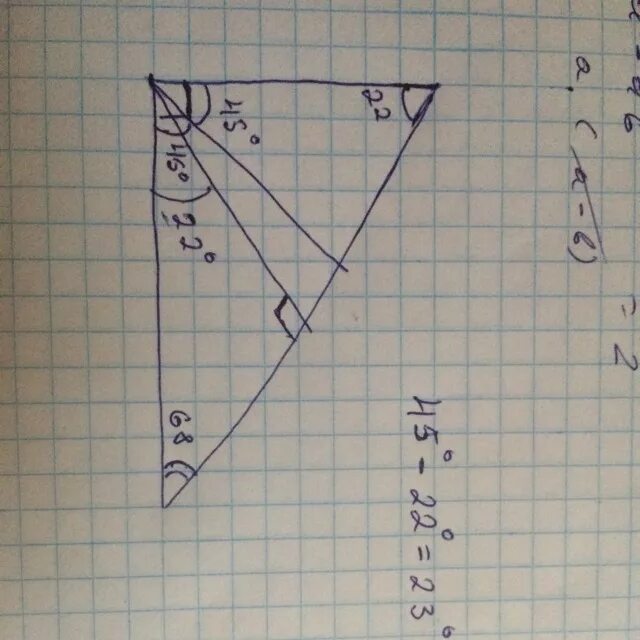 a. (a-б)
= 2
22
45°
45°
22°
68
45° - 22° = 23°